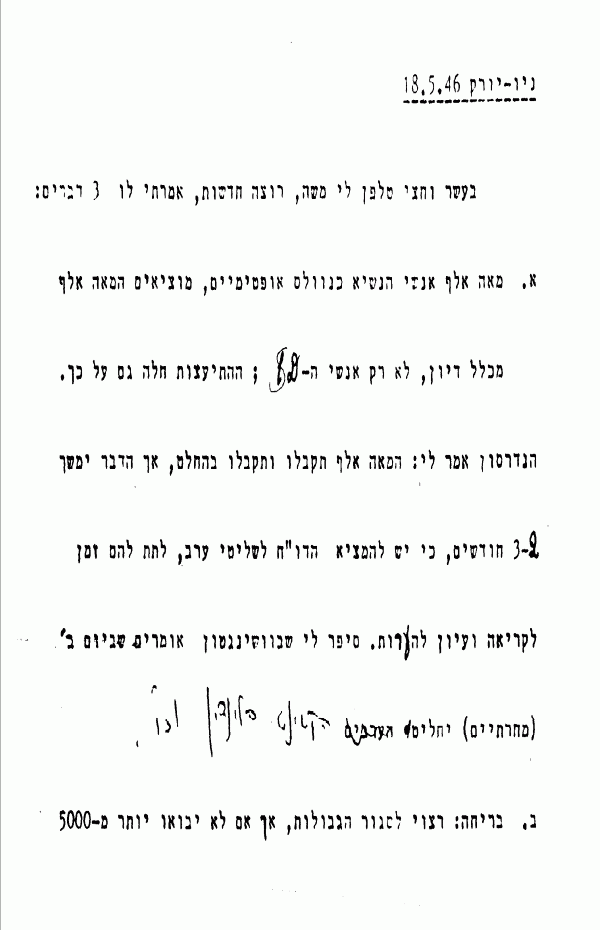 ניו-יורק 18.5.46
בעשר וחצי טלפן לי משה, רוצה חדשות, אמרתי לו 3 דברים:
א. מאה אלף אנשי הנשיא כנוולס אופטימיים, מוציאים המאה אלף
מכלל דיון, לא רק אנשי ה- ; ההתיעצות חלה גם על כך.
הנדרסון אמר לי: המאה אלף תקבלו ותקבלו בהחלט, אך הדבר ימשך
3-2 חודשים, כי יש להמציא הדו"ח לשליטי ערב, לתת להם זמן
לקריאה ועיון להערות. סיפר לי שבוושינגטון אומרים שביום ב'
(מחרתיים) יחליט הקבינט
ב. בריחה: רצוי לסגור הגבולות, אך אם לא יבואו יותר מ-5000